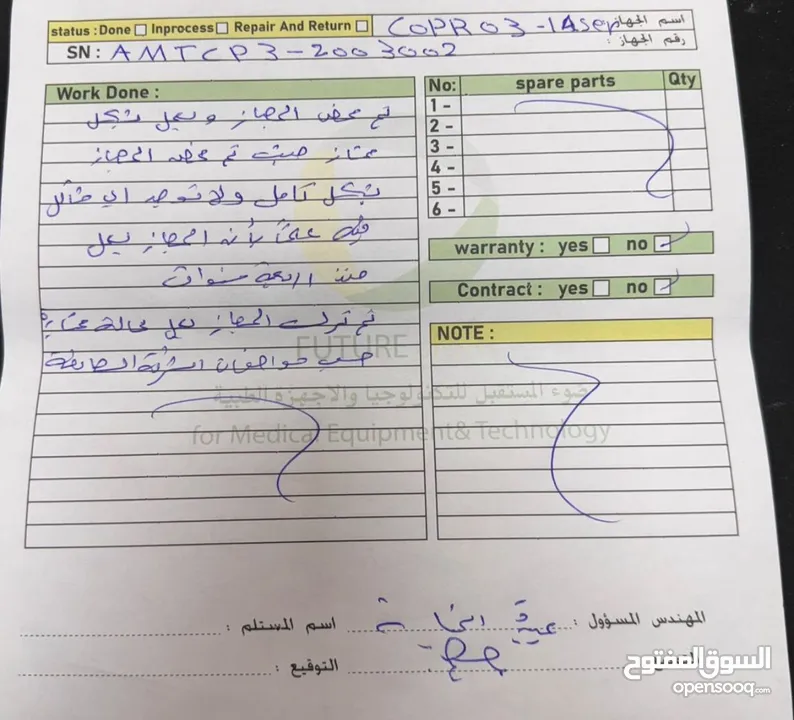 status : Done Inprocess Repair And Return
اسم الجهاز: COPRO3 - lAser
رقم الجهاز :
SN : AMTCP3-2003002
Work Done :
تم فحص الجهاز ويعمل بشكل
ممتاز حيث تم فحص الجهاز
بشكل كامل ولا توجد اي مشاكل
فيه علماً بأنه الجهاز يعمل
منذ اربعة سنوات
تم ترك الجهاز يعمل بحالة ممتازة
حسب مواصفات الشركة الصانعة
No: spare parts Qty
1 -
2 -
3 -
4 -
5 -
6 -
warranty : yes no
Contract : yes no
NOTE :
FUTURE
ضوء المستقبل للتكنولوجيا والاجهزة الطبية
for Medical Equipment & Technology
المهندس المسؤول :
اسم المستلم :
التوقيع :
السوق المفتوح
opensooq.com